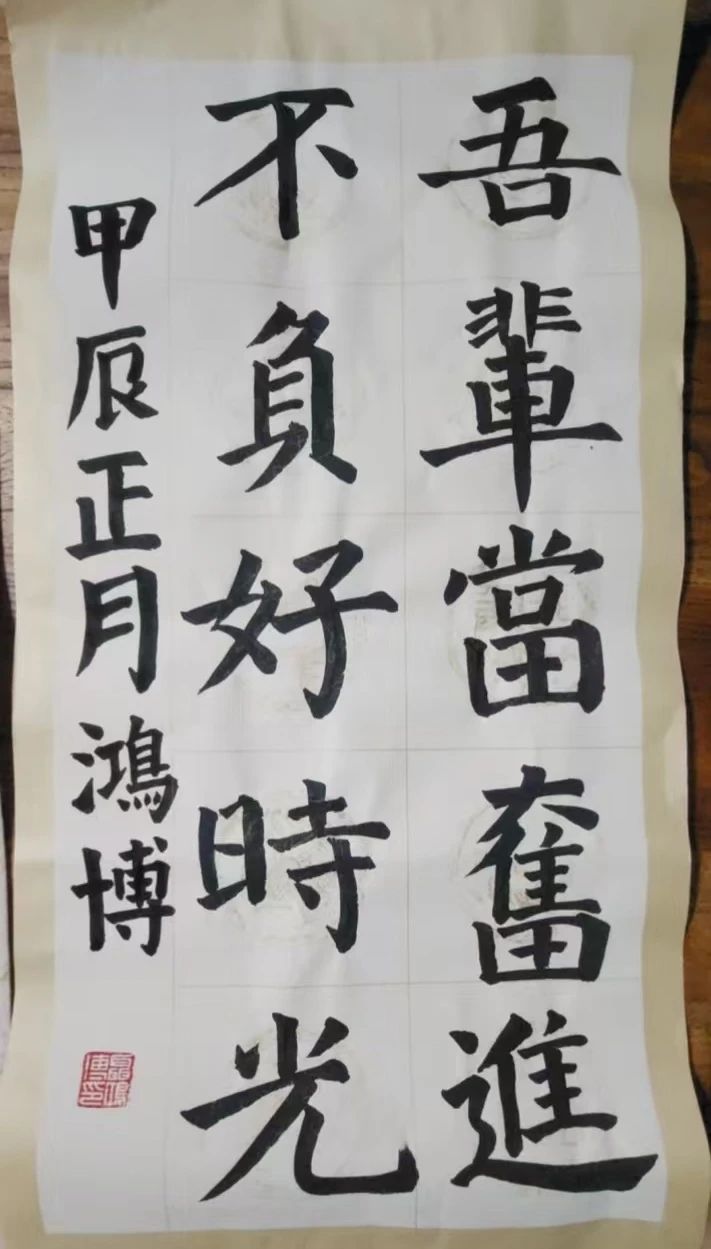 吾輩當奮進
不負好時光
甲辰正月鴻博